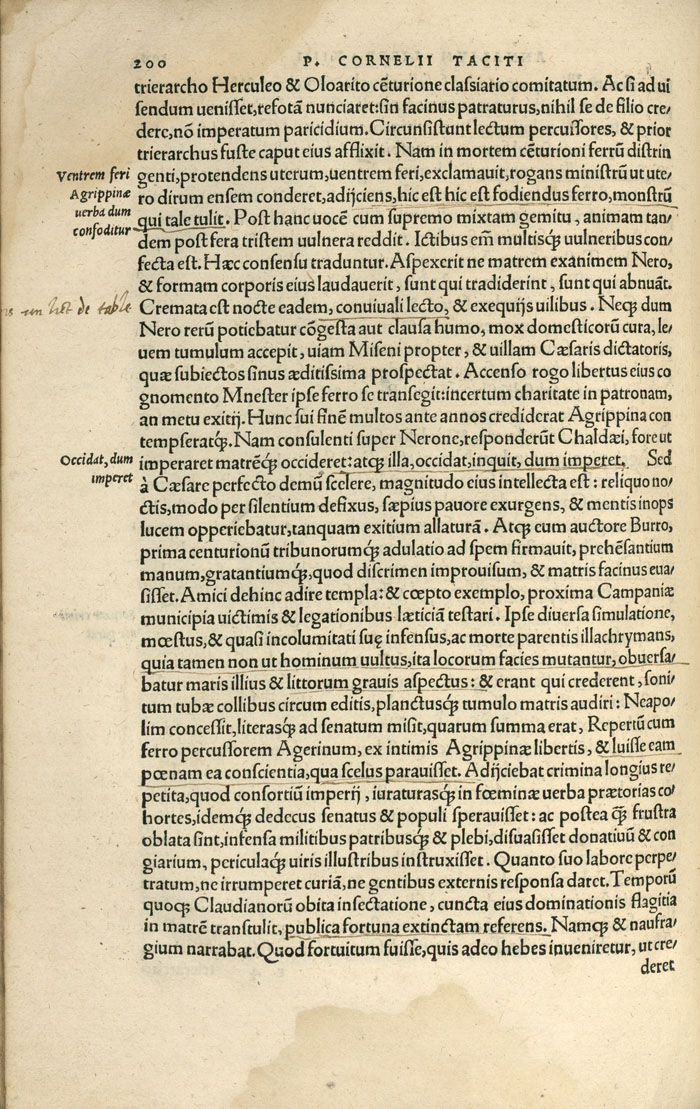 200 P. CORNELII TACITI
trierarcho Herculeo & Oloarito cẽturione classiario comitatum. Ac si ad ui
sendum uenisset, refotã nunciaret: sin facinus patraturus, nihil se de filio cre⸗
dere, nõ imperatum paricidium. Circunsistunt lectum percussores, & prior
trierarchus fuste caput eius afflixit. Nam in mortem cẽturioni ferrũ distrin
Ventrem feri
Agrippinæ
uerba dum
confoditur
genti, protendens uterum, uentrem feri, exclamauit, rogans ministrũ ut ute⸗
ro dirum ensem conderet, adijciens, hic est hic est fodiendus ferro, monstrũ
qui tale tulit. Post hanc uocẽ cum supremo mixtam gemitu, animam tan⸗
dem post fera tristem uulnera reddit. Ictibus em̃ multisq́ʒ uulneribus con⸗
fecta est. Hæc consensu traduntur. Aspexerit ne matrem exanimem Nero,
& formam corporis eius laudauerit, sunt qui tradiderint, sunt qui abnuãt.
un lict de table
Cremata est nocte eadem, conuiuali lecto, & exequijs uilibus. Neqʒ dum
Nero rerũ potiebatur cõgesta aut clausa humo, mox domesticorũ cura, le⸗
uem tumulum accepit, uiam Miseni propter, & uillam Cæsaris dictatoris,
quæ subiectos sinus æditissima prospectat. Accenso rogo libertus eius co
gnomento Mnester ipse ferro se transegit: incertum charitate in patronam,
an metu exitij. Hunc sui finẽ multos ante annos crediderat Agrippina con
tempseratq́ʒ. Nam consulenti super Nerone, responderũt Chaldæi, fore ut
Occidat, dum
imperet
imperaret matrẽq́ʒ occideret: atqʒ illa, occidat, inquit, dum imperet. Sed
à Cæsare perfecto demũ scelere, magnitudo eius intellecta est: reliquo no⸗
ctis, modo per silentium defixus, sæpius pauore exurgens, & mentis inops
lucem opperiebatur, tanquam exitium allaturã. Atqʒ eum auctore Burro,
prima centurionũ tribunorumq́ʒ adulatio ad spem firmauit, prehẽsantium
manum, gratantiumq́ʒ, quod discrimen improuisum, & matris facinus eua⸗
sisset. Amici dehinc adire templa: & cœpto exemplo, proxima Campaniæ
municipia uictimis & legationibus læticiã testari. Ipse diuersa simulatione,
mœstus, & quasi incolumitati suę infensus, ac morte parentis illachrymans,
quia tamen non ut hominum uultus, ita locorum facies mutantur, obuersa⸗
batur maris illius & littorum grauis aspectus: & erant qui crederent, soni⸗
tum tubæ collibus circum editis, planctusq́ʒ tumulo matris audiri: Neapo⸗
lim concessit, literasq́ʒ ad senatum misit, quarum summa erat, Repertũ cum
ferro percussorem Agerinum, ex intimis Agrippinæ libertis, & luisse eam
pœnam ea conscientia, qua scelus parauisset. Adijciebat crimina longius re⸗
petita, quod consortiũ imperij, iuraturasq́ʒ in fœminæ uerba prætorias co⸗
hortes, idemq́ʒ dedecus senatus & populi sperauisset: ac postea q̃ʒ frustra
oblata sint, infensa militibus patribusq́ʒ & plebi, disuasisset donatiuũ & con
giarium, periculaq́ʒ uiris illustribus instruxisset. Quanto suo labore perpe⸗
tratum, ne irrumperet curiã, ne gentibus externis responsa daret. Temporũ
quoqʒ Claudianorũ obita insectatione, cuncta eius dominationis flagitia
in matrẽ transtulit, publica fortuna extinctam referens. Namqʒ & naufra⸗
gium narrabat. Quod fortuitum fuisse, quis adeo hebes inueniretur, ut cre⸗
deret